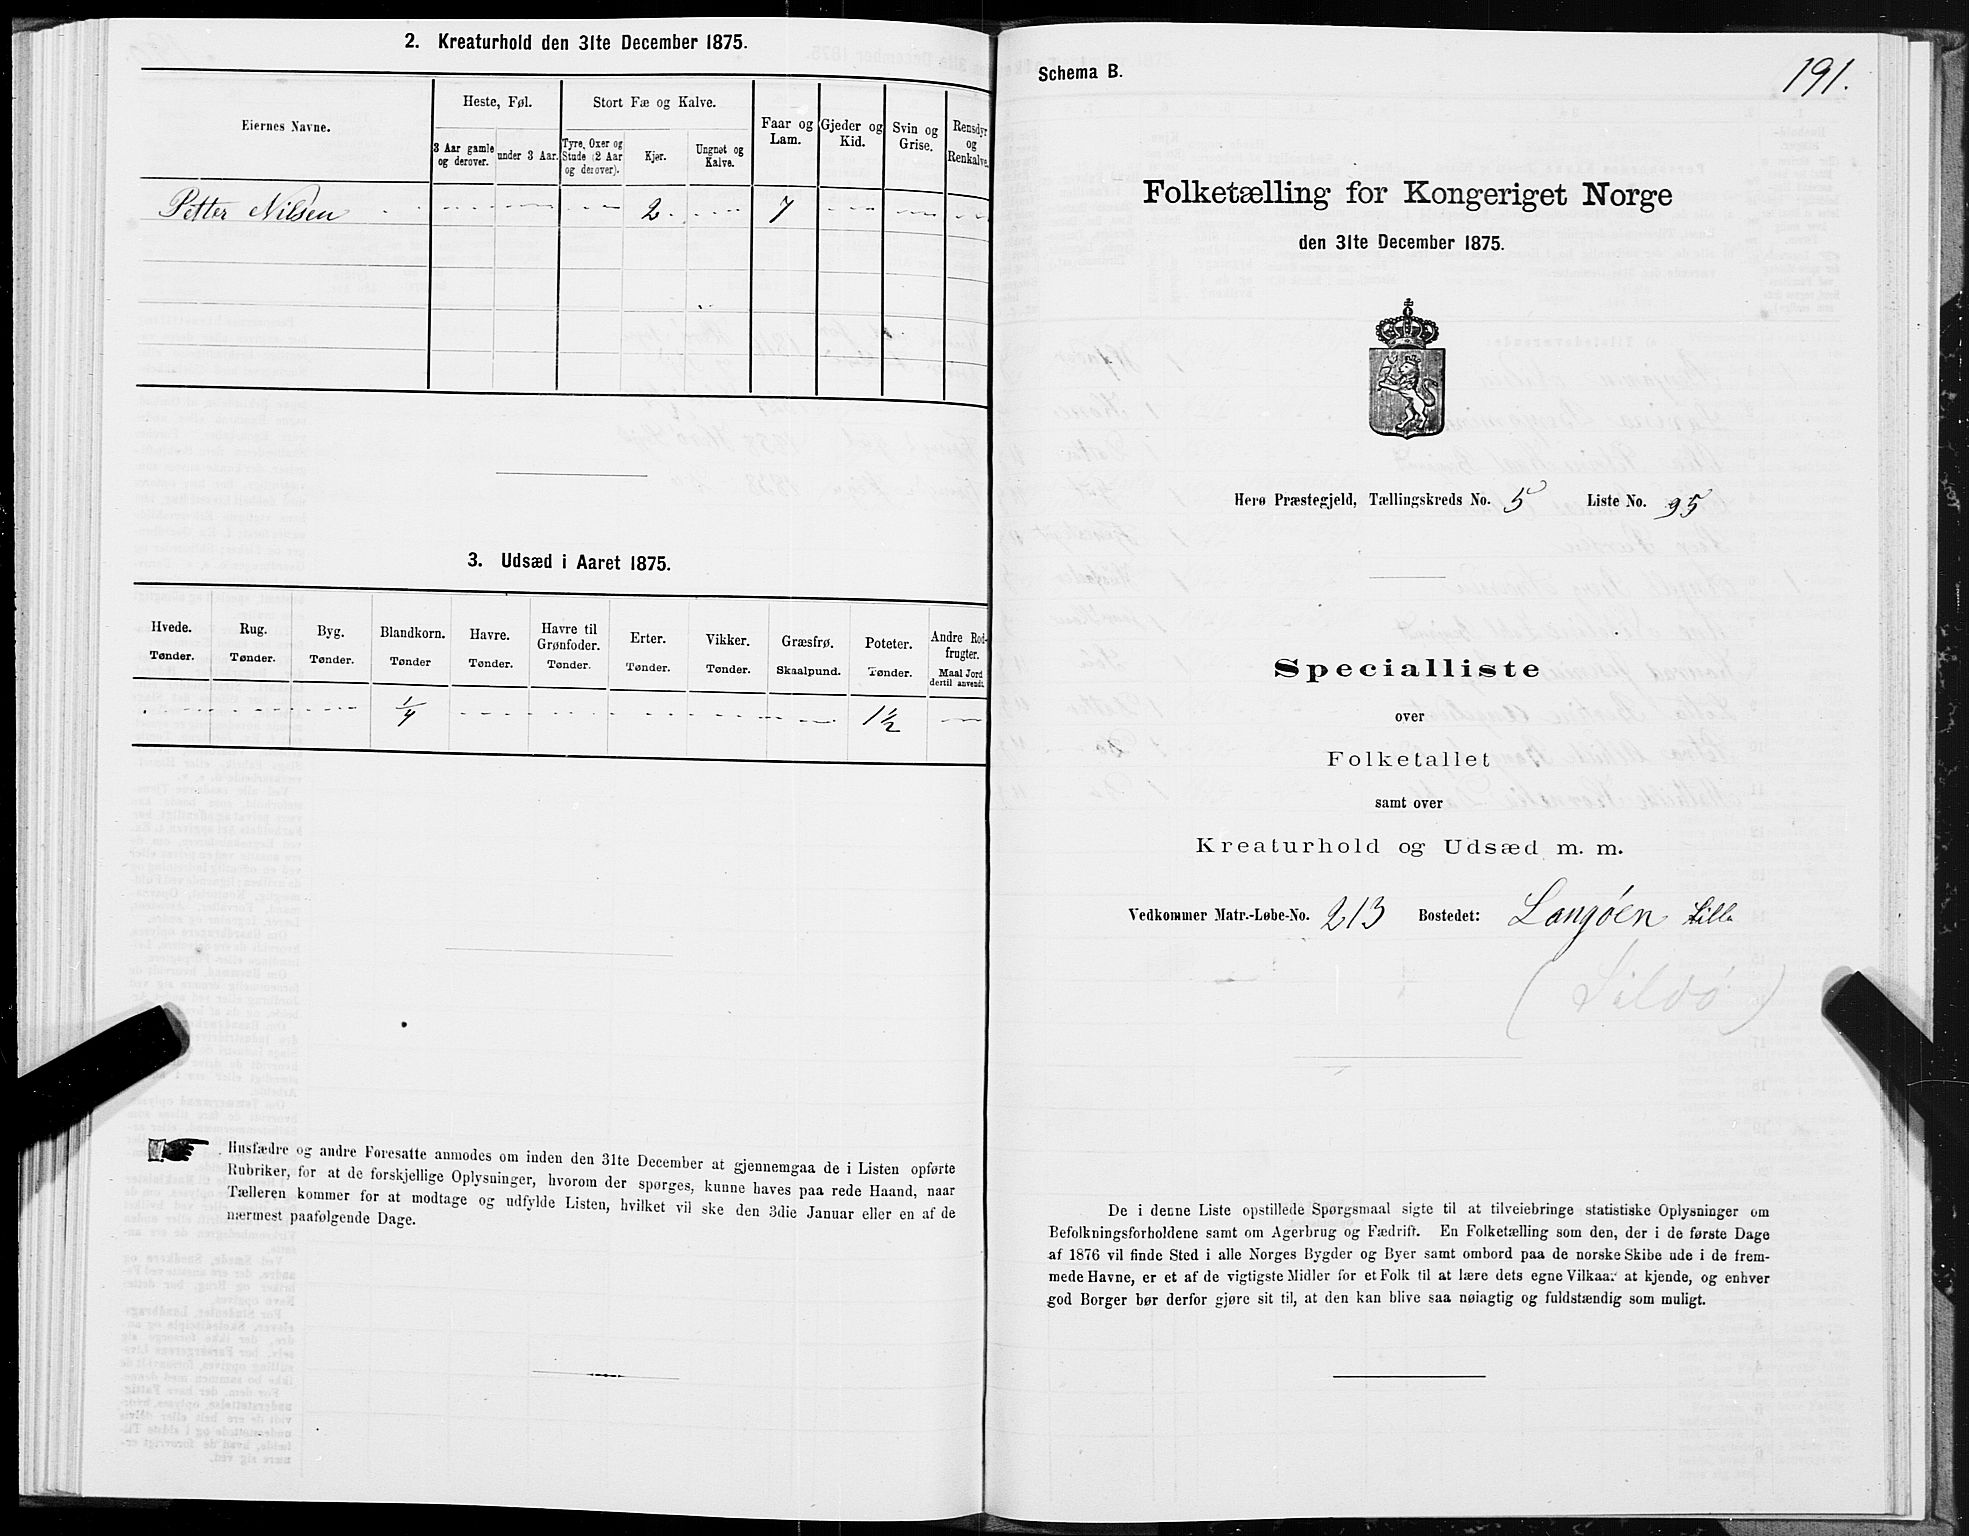 2. Kreaturhold den 31te December 1875.
Eiernes Navne.
Heste, Føl.
Stort Fæ og Kalve.
Faar og Lam.
Gjeder og Kid.
Svin og Grise.
Rensdyr og Renkalve.
3 Aar gamle og derover.
under 3 Aar.
Tyre, Oxer og Stude (2 Aar og derover).
Kjør.
Ungnøt og Kalve.
Petter Nilsen 2. 7
3. Udsæd i Aaret 1875.
Hvede. Rug. Byg. Blandkorn. Havre. Havre til Grønfoder. Erter. Vikker. Græsfrø. Poteter. Andre Rodfrugter.
Tønder. Tønder. Tønder. Tønder Tønder. Tønder. Tønder. Tønder. Skaalpund. Tønder. Maal Jord dertil anvendt.
1/4 1 1/2
Husfædre og andre Foresatte anmodes om inden den 31te December at gjennemgaa de i Listen opførte
Rubriker, for at de forskjellige Oplysninger, hvorom der spørges, kunne haves paa rede Haand, naar
Tælleren kommer for at modtage og udfylde Listen, hvilket vil ske den 3die Januar eller en af de
nærmest paafølgende Dage.
Schema B.
191.
Folketælling for Kongeriget Norge
den 31te December 1875.
Herø Præstegjeld, Tællingskreds No. 5 Liste No. 95
Specialliste
over
Folketallet
samt over
Kreaturhold og Udsæd m. m.
Vedkommer Matr.-Løbe-No. 213 Bostedet: Langøen Lille
(Sildø)
De i denne Liste opstillede Spørgsmaal sigte til at tilveiebringe statistiske Oplysninger om
Befolkningsforholdene samt om Agerbrug og Fædrift. En Folketælling som den, der i de første Dage
af 1876 vil finde Sted i alle Norges Bygder og Byer samt ombord paa de norske Skibe ude i de frem-
mede Havne, er et af de vigtigste Midler for et Folk til at lære dets egne Vilkaar at kjende, og enhver
god Borger bør derfor gjøre sit til, at den kan blive saa nøiagtig og fuldstændig som muligt.